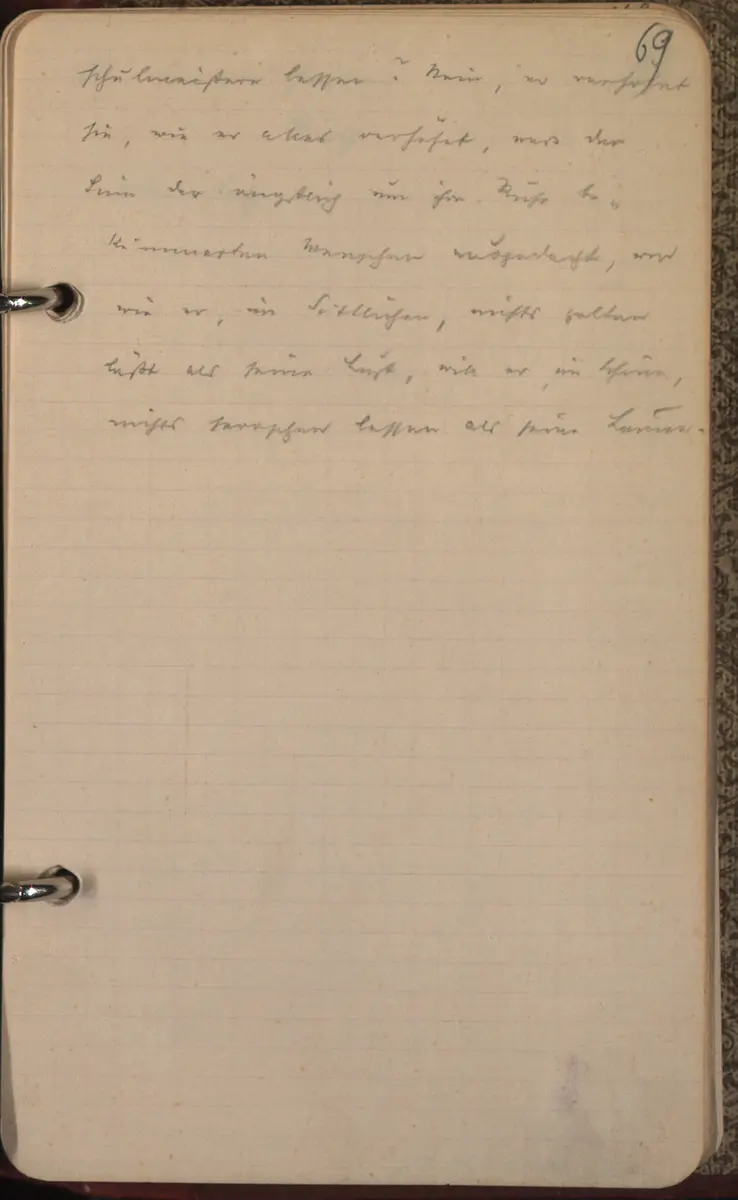 69
schulmeistern lassen? Nein, er verhöhnt
sie, wie er alles verhöhnt, was der
Sinn der ängstlich um ihre Ruhe be-
kümmerten Menschen ausgedacht, und
wie er, im Sittlichen, nichts gelten
läßt als seine Lust, will er, im Schönen,
nichts herrschen lassen als seine Laune.